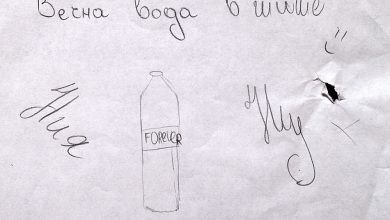 Вечна вода в шише
Ния
FOREVER